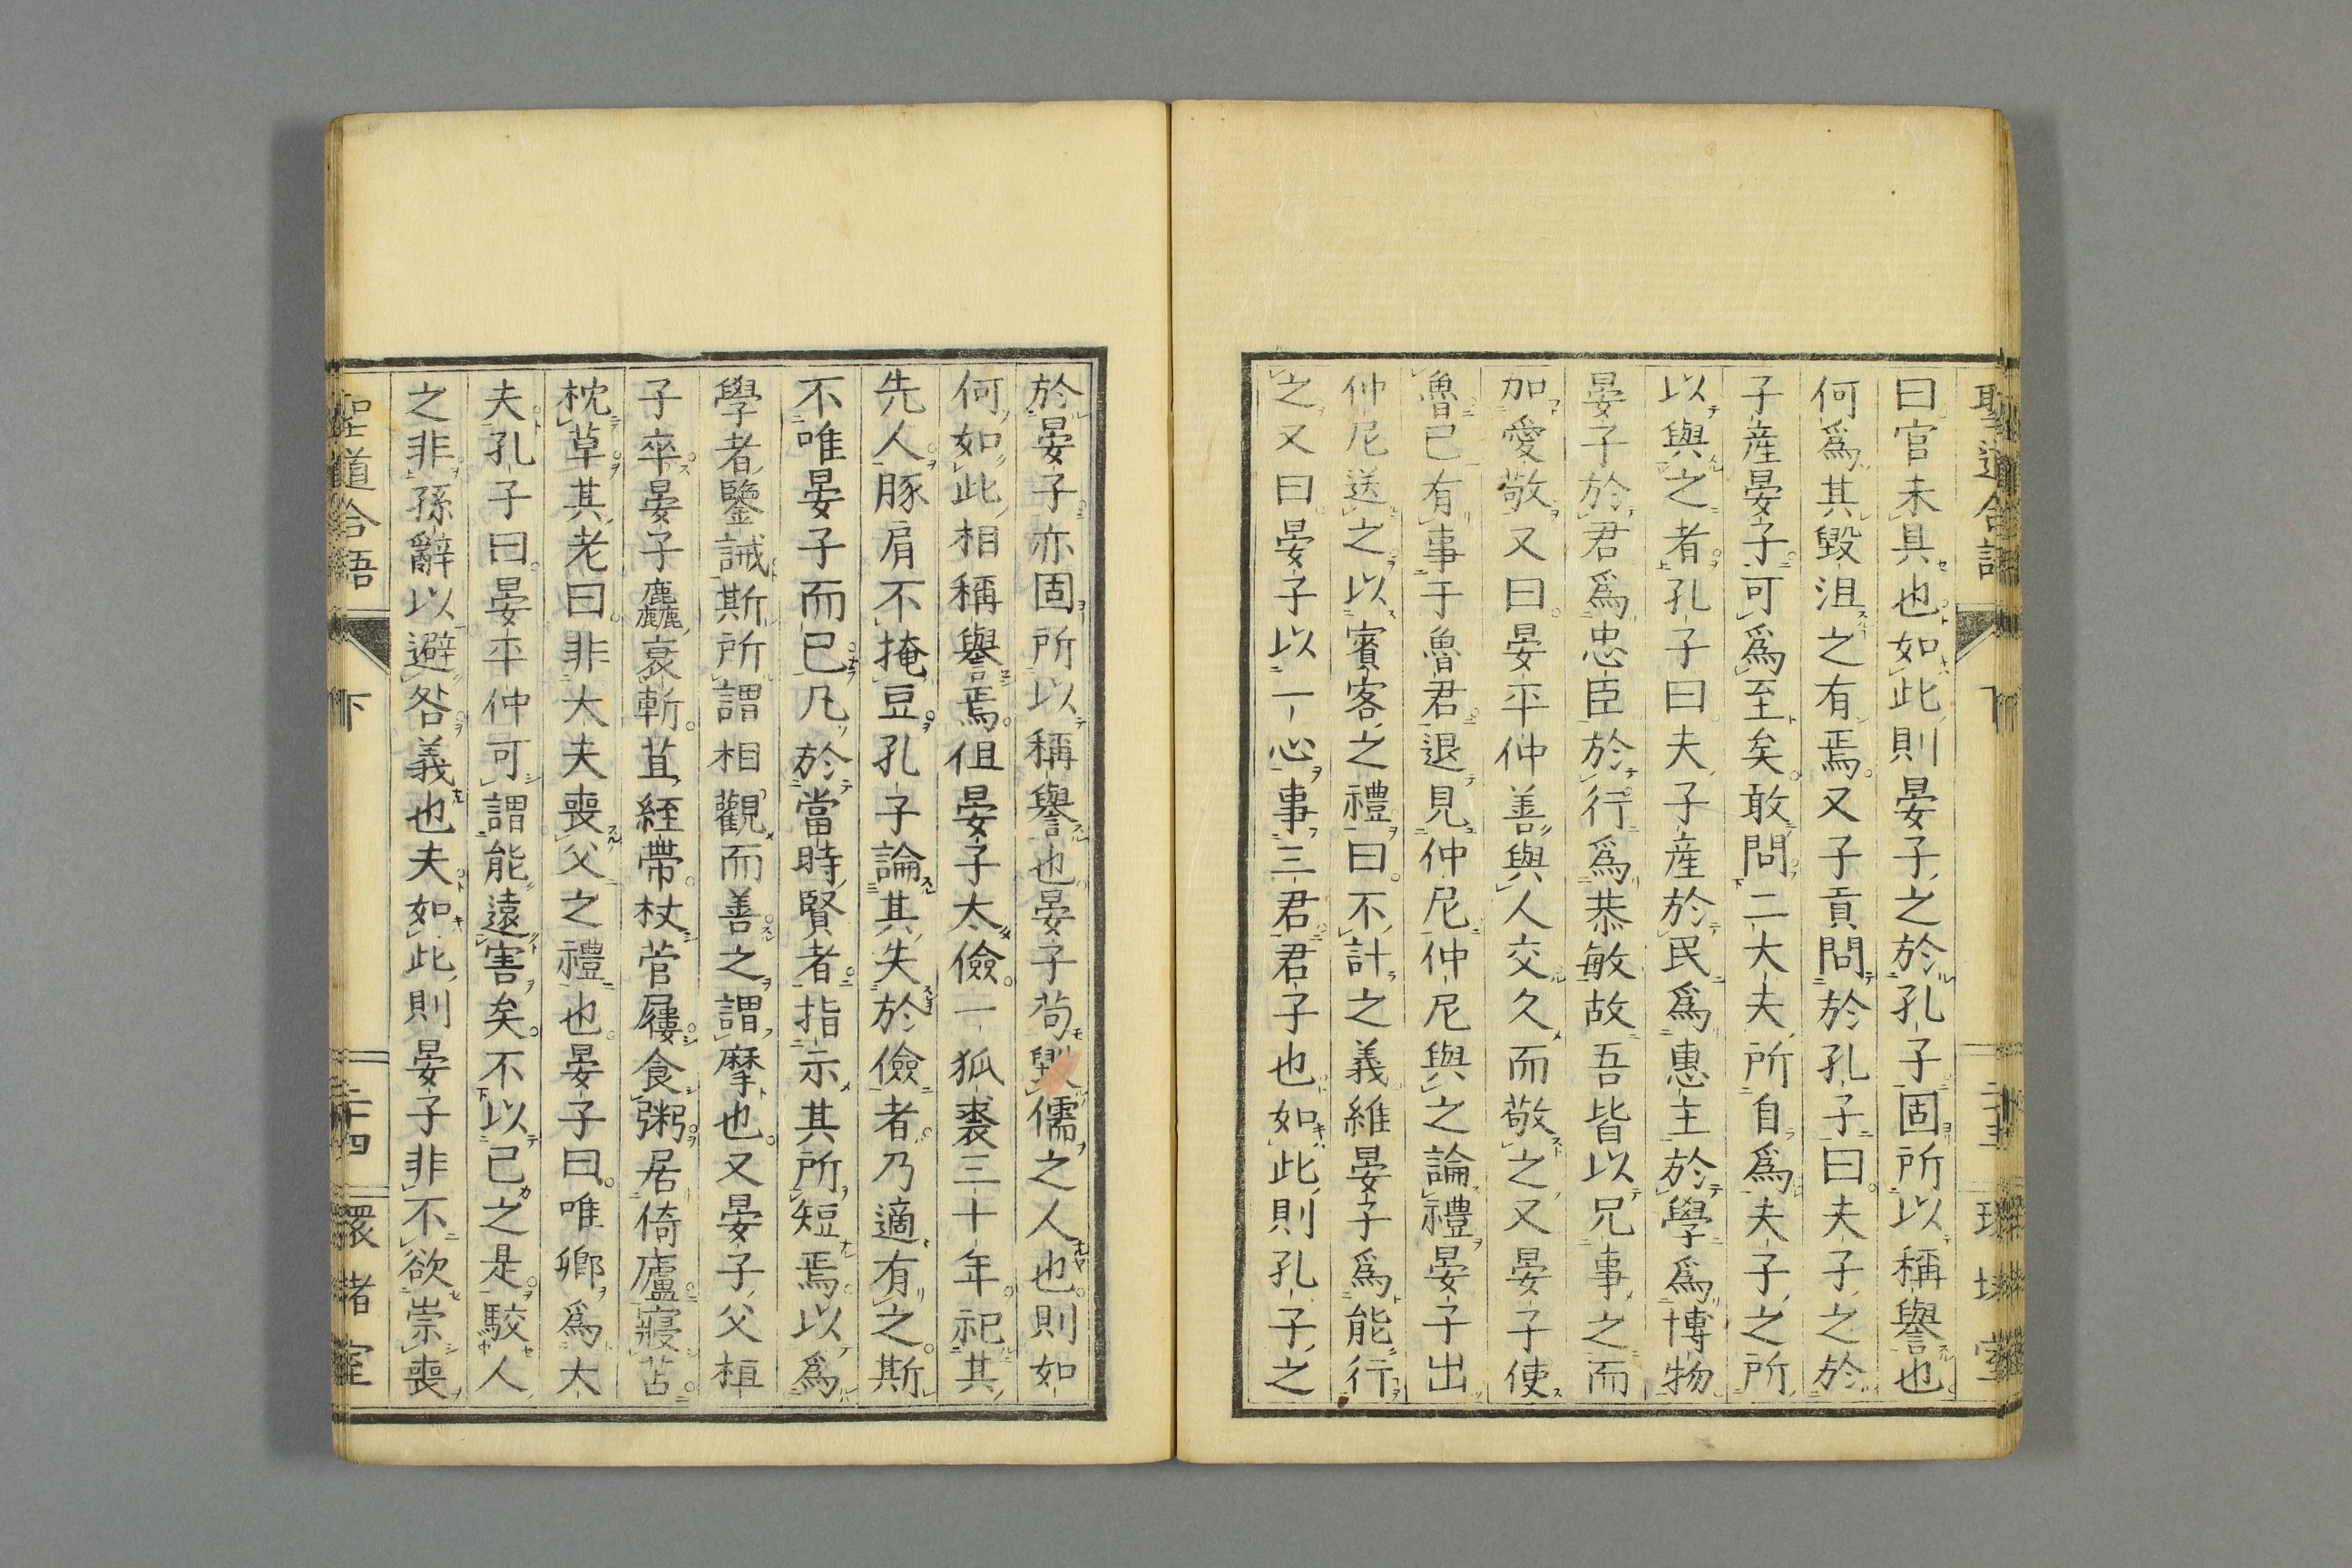 聖道合語 下
曰官未具也如此則晏子之於孔子固所以稱譽也
何爲其毀沮之有焉又子貢問於孔子曰夫子之於
子産晏子可爲至矣敢問二大夫所自爲夫子之所
以與之者孔子曰夫子産於民爲惠主於學爲博物
晏子於君爲忠臣於行爲恭敏故吾皆以兄事之而
加愛敬又曰晏平仲善與人交久而敬之又晏子使
魯已有事于魯君退見仲尼仲尼與之論禮晏子出
仲尼送之以賓客之禮曰不計之義維晏子爲能行
之又曰晏子以一心事三君君子也如此則孔子之
於晏子亦固所以稱譽也晏子苟毀儒之人也則如
何如此相稱譽焉伹晏子太儉一狐裘三十年祀其
先人豚肩不掩豆孔子論其失於儉者乃適有之斯
不唯晏子而已凡於當時賢者指示其所短焉以爲
學者鑒誡斯所謂相觀而善之謂摩也又晏子父桓
子卒晏子麤衰斬苴絰帶杖菅屨食粥居倚廬寢苫
枕草其老曰非大夫喪父之禮也晏子曰唯卿爲大
夫孔子曰晏平仲可謂能遠害矣不以已之是駮人
之非孫辭以避咎義也夫如此則晏子非不欲崇喪
聖道合語 下 二十四 環堵室